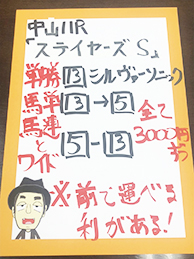 中山11R
「ステイヤーズS」
単勝 13 シルヴァーソニック
馬単 13→5 全て
馬連とワイド 5-13 3000円ずつ
※前で運べる
利がある!